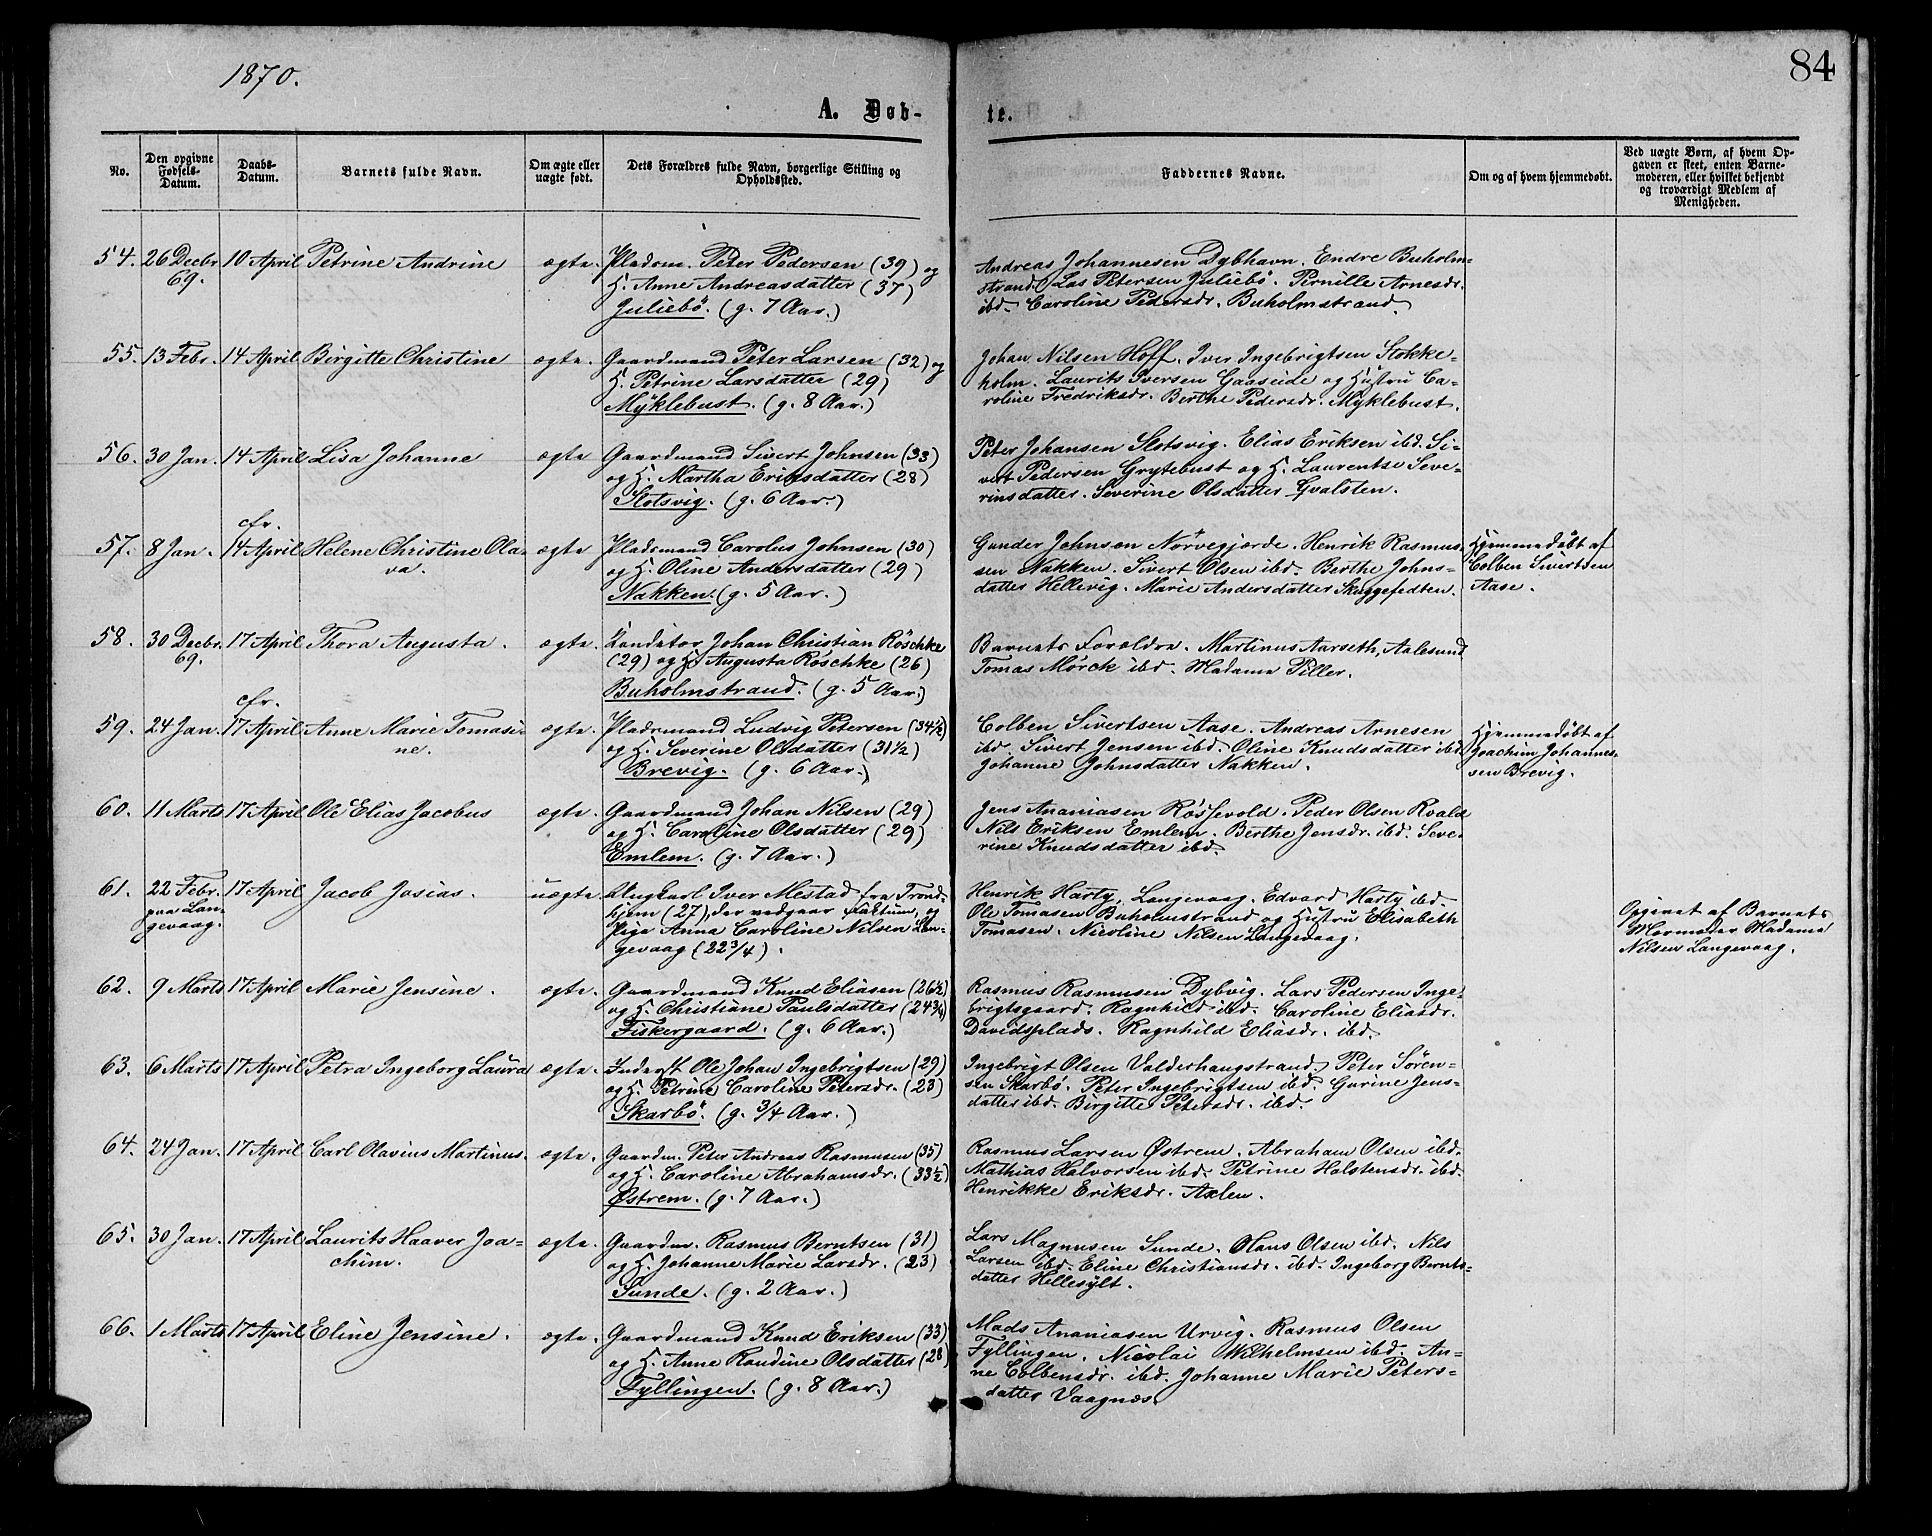 1870.
84
A. Døb-
te.
No.
Den opgivne
Fødsels-
Datum.
Daabs-
Datum.
Barnets fulde Navn.
Om ægte eller
uægte født.
Dets Forældres fulde Navn, borgerlige Stilling og
Opholdssted.
Faddernes Navne.
Om og af hvem hjemmedøbt.
Ved uægte Børn, af hvem Op-
gaven er skeet, enten Barne-
moderen, eller hvilket bekjendt
og troværdigt Medlem af
Menigheden.
54. 26 Decbr. 10 April Petrine Andrine ægte. Pladsm. Peter Pedersen (39) og
69.
H. Anne Andreasdatter (37)
Juliebö. (g. 7 Aar.)
Andreas Johannesen Dybhavn. Endre Buholm-
strand. Las Petersen Juliebö. Pernille Arnesdr.
ibd. Caroline Pedersdr. Buholmstrand.
55. 13 Febr. 14 April Birgitte Christine ægte. Gaardmand Peter Larsen (32) og
H. Petrine Larsdatter (29)
Myklebust. (g. 8 Aar.)
Johan Nilsen Hoff. Iver Ingebrigtsen Stokke-
holm. Laurits Iversen Gaaseide og Hustru Ca-
roline Fredriksdr. Berthe Pedersdr. Myklebust.
56. 30 Jan. 14 April Lisa Johanne ægte Gaardmand Sivert Johnsen (33)
og H. Martha Eriksdatter (28)
Slotsvig. (g. 6 Aar.)
Peter Johansen Slotsvig. Elias Eriksen ibd. Si-
vert Pedersen Grytebust og H. Laurentse Seve-
rinsdatter. Severine Olsdatter Gvalsten.
cfr.
57. 8 Jan. 14 April Helene Christine Ola- ægte Pladsmand Carolus Johnsen (30)
va.
og H. Oline Andersdatter (29)
Nakken. (g. 5 Aar.)
Gunder Johnsen Nørvegjerde. Henrik Rasmus-
sen Nakken. Sivert Olsen ibd. Berthe Johns-
datter Hellevig. Marie Andersdatter Skuggefedten.
Hjemmedøbt af
Colben Sivertsen
Aase.
58. 30 Decbr. 17 April Thora Augusta. ægte. Konditor Johan Christian Röschke
69.
(29) og H. Augusta Röschke (26)
Buholmstrand. (g. 5 Aar.)
Barnets Forældre. Martinus Aarseth, Aalesund
Tomas Mörck ibd. Madame Piller.
cfr.
59. 24 Jan. 17 April Anne Marie Tomasi- ægte. Pladsmand Ludvig Petersen (34½)
ne.
og H. Severine Olsdatter (31½)
Brevig. (g. 6 Aar.)
Colben Sivertsen Aase. Andreas Arnesen
ibd. Sivert Jensen ibd. Oline Knudsdatter ibd.
Johanne Johnsdatter Nakken.
Hjemmedøbt af
Joachim Johannes-
sen Brevig.
60. 11 Marts 17 April Ole Elias Jacobus ægte. Gaardmand Johan Nilsen (29)
og H. Caroline Olsdatter (29)
Emlem. (g. 7 Aar.)
Jens Ananiasen Røssevold. Peder Olsen Roald
Nils Eriksen Emlem. Berthe Jensdr. ibd. Seve-
rine Knudsdatter ibd.
61. 22 Febr. 17 April Jacob Josias. uægte. Ungkarl Iver Mestad fra Trond-
paa Lan-
gevaag.
hjem (27), der vedgaar factum, og
Pige Anna Caroline Nilsen Lan-
gevaag (22¾).
Henrik Harty, Langevaag. Edvard Harty ibd.
Ole Tomasen Buholmstrand og Hustru Elisabeth
Tomasen. Nicoline Nilsen Langevaag.
Opgivet af Barnets
Mormoder Madame
Nilsen Langevaag.
62. 9 Marts 17 April Marie Jensine. ægte. Gaardmand Knud Eliasen (26½)
og H. Christiane Paulsdatter (24¾)
Fiskergaard. (g. 6 Aar.)
Rasmus Rasmusen Dybvig. Lars Pedersen Inge-
brigtsgaard. Ragnhild ibd. Caroline Eliasdr.
Davidsplads. Ragnhild Eliasdr. ibd.
63. 6 Marts 17 April Petra Ingeborg Laura ægte. Inderst Ole Johan Ingebrigtsen (29)
og H. Petrine Caroline Petersdr. (23)
Skarbö. (g. ¾ Aar.)
Ingebrigt Olsen Valderhaugstrand. Peter Sören-
sen Skarbö. Peter Ingebrigtsen ibd. Gurine Jens-
datter ibd. Birgitte Petersdr. ibd.
64. 24 Jan. 17 April Carl Olavius Martinus. ægte. Gaardm. Peter Andreas Rasmusen (35)
og H. Caroline Abrahamsdr. (33½)
Østrem. (g. 7 Aar.)
Rasmus Larsen Østrem. Abraham Olsen ibd.
Mathias Halvorsen ibd. Petrine Holstensdr. ibd.
Henrikke Eriksdr. Axlen.
65. 30 Jan. 17 April Laurits Haaver Joa- ægte. Gaardm. Rasmus Berntsen (31)
chim.
og H. Johanne Marie Larsdr. (23)
Sunde. (g. 2 Aar.)
Lars Magnusen Sunde. Hans Olsen ibd. Nils
Larsen ibd. Eline Christiansdr. ibd. Ingeborg Bernts-
datter Hellesylt.
66. 1 Marts 17 April Eline Jensine. ægte. Gaardmand Knud Eriksen (33)
og H. Anne Randine Olsdatter (28)
Fyllingen. (g. 8 Aar.)
Mads Ananiasen Urvig. Rasmus Olsen
Fyllingen. Nicolai Wilhelmsen ibd. An-
ne Colbensdr. ibd. Johanne Marie Peters-
datter Vaagnæs.